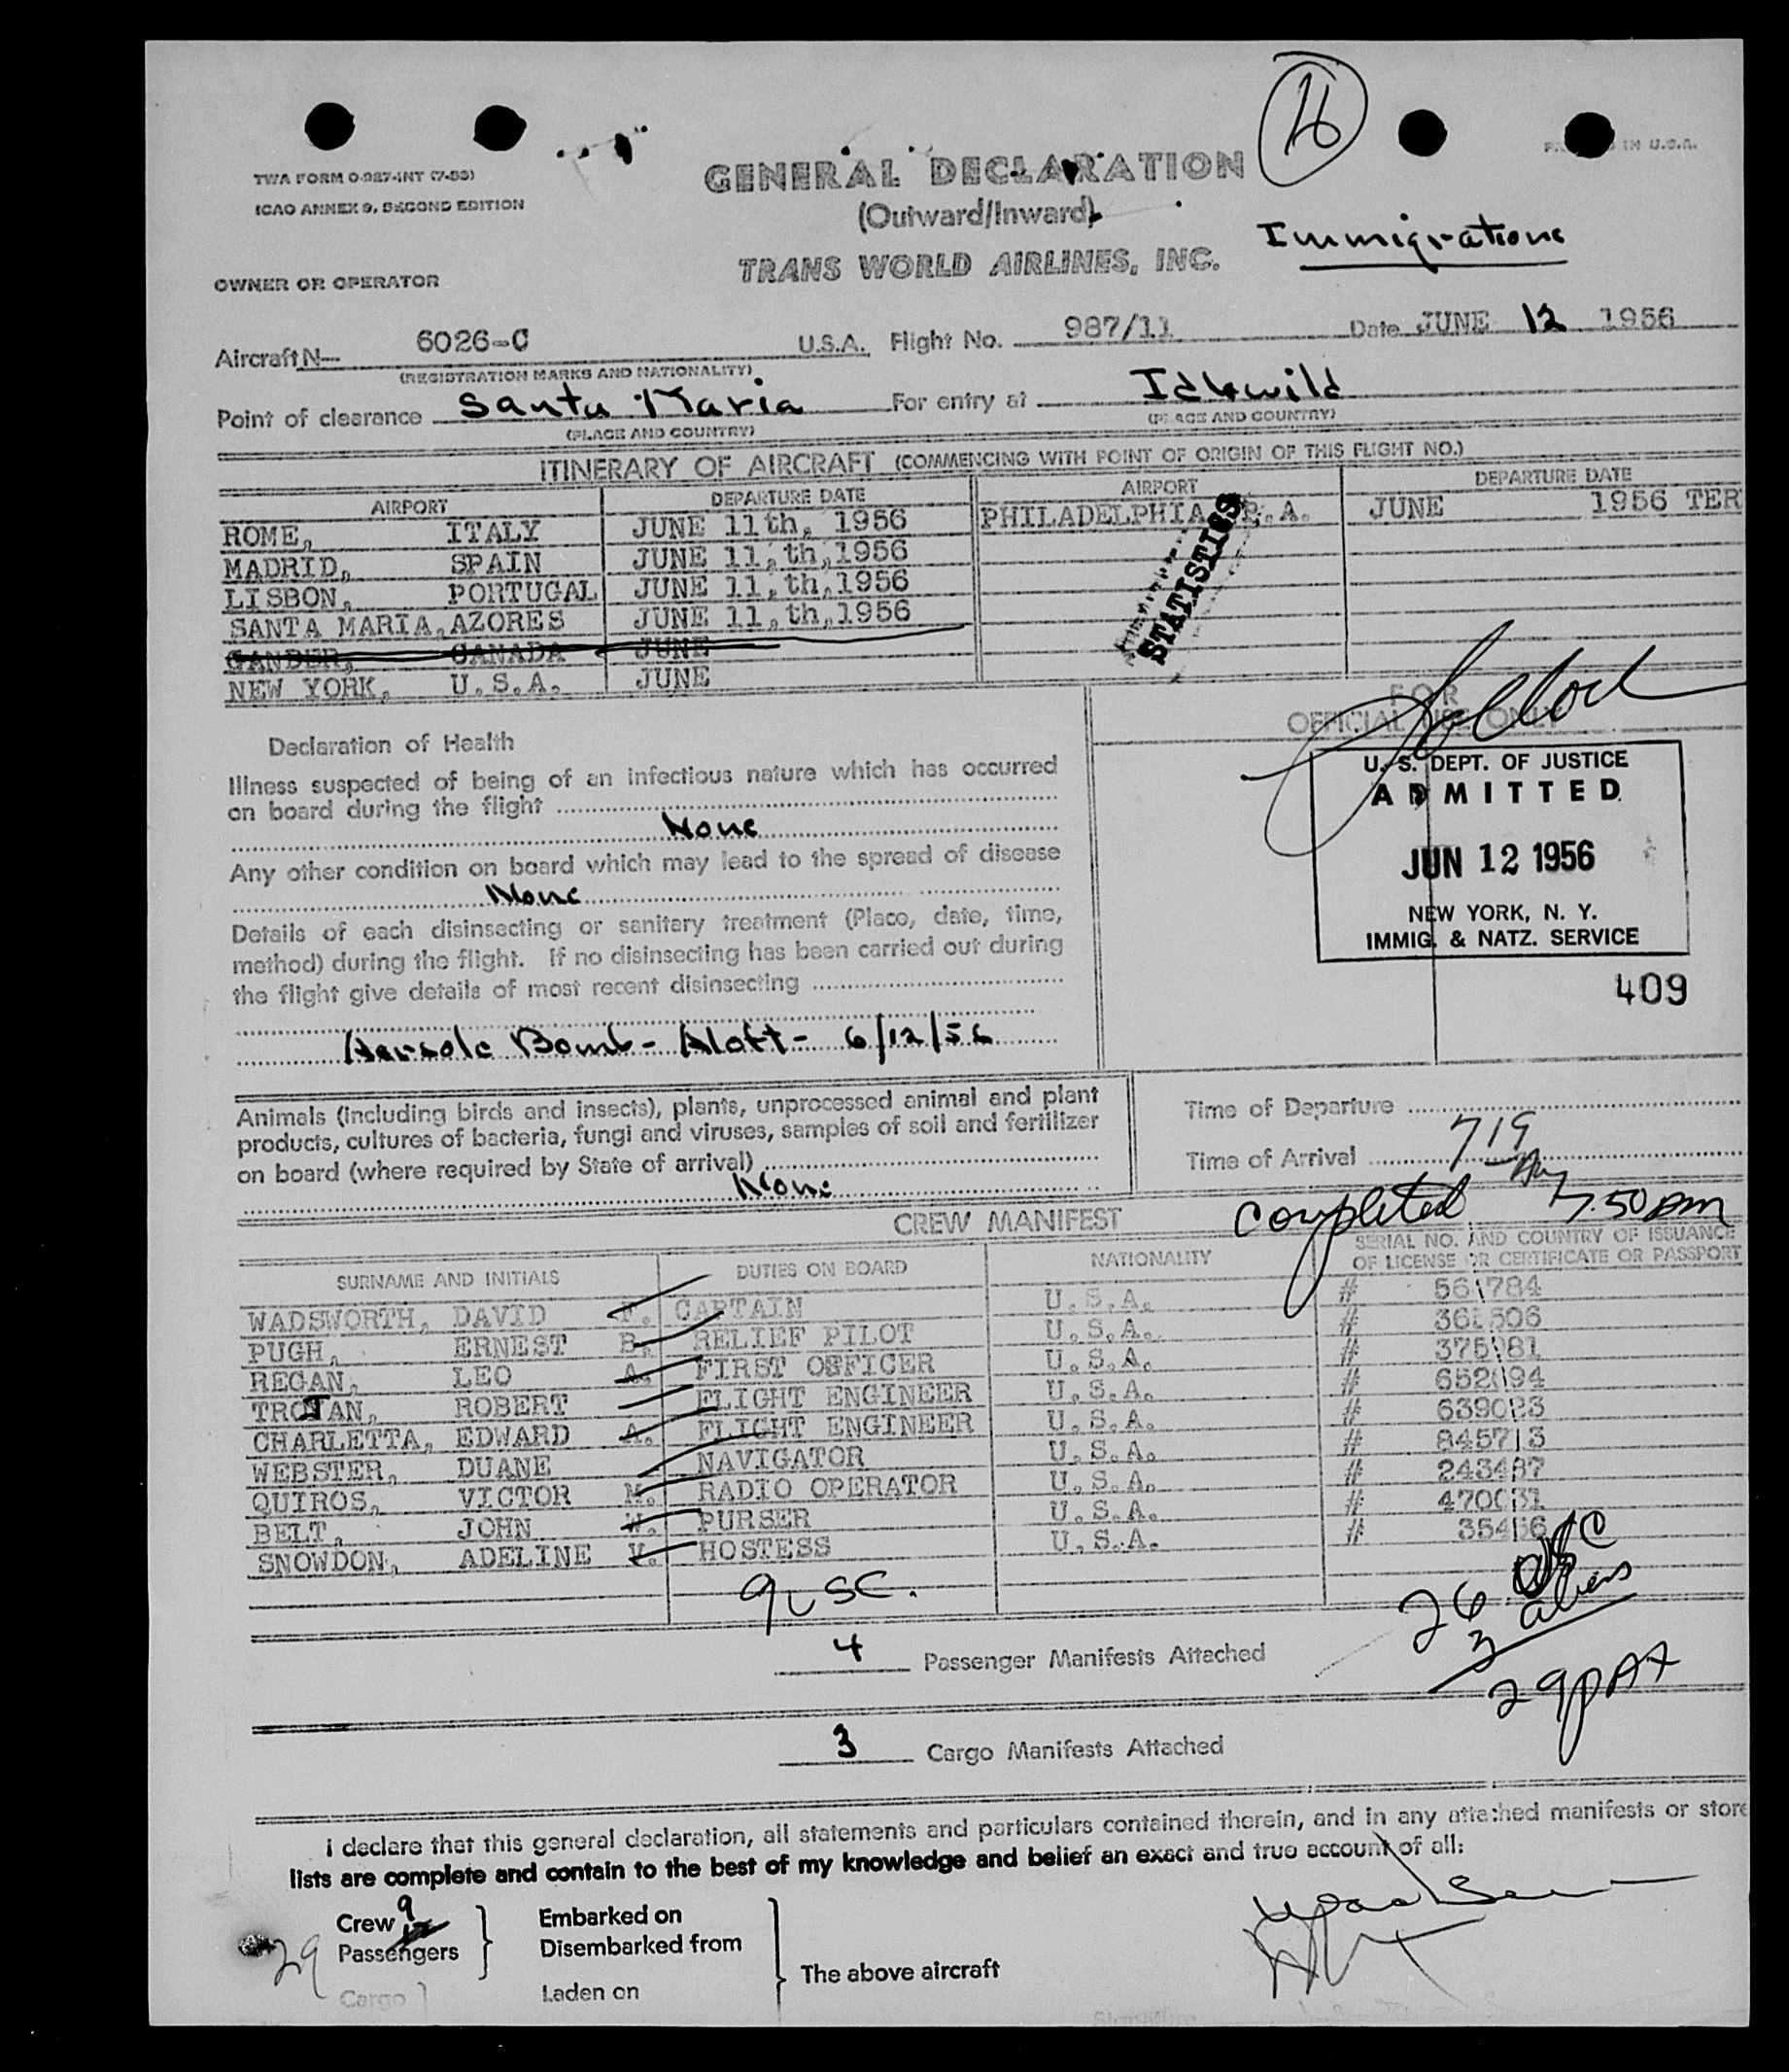 16
TWA FORM O-927-INT (7-53)
ICAO ANNEX 9, SECOND EDITION
IN U.S.A.
GENERAL DECLARATION
(Outward/Inward)
Immigrations
TRANS WORLD AIRLINES, INC.
OWNER OR OPERATOR
Aircraft N— 6026-C U.S.A. Flight No. 987/11 Date JUNE 12 1956
(REGISTRATION MARKS AND NATIONALITY)
Point of clearance Santa Maria For entry at Idlewild
(PLACE AND COUNTRY) (PLACE AND COUNTRY)
ITINERARY OF AIRCRAFT (COMMENCING WITH POINT OF ORIGIN OF THIS FLIGHT NO.)
AIRPORT DEPARTURE DATE AIRPORT DEPARTURE DATE
ROME, ITALY JUNE 11th, 1956 PHILADELPHIA, P.A. JUNE 1956 TER
MADRID, SPAIN JUNE 11,th,1956
LISBON, PORTUGAL JUNE 11,th,1956
SANTA MARIA, AZORES JUNE 11,th,1956
GANDER, CANADA JUNE
NEW YORK, U.S.A. JUNE
STATISTICS
FOR
OFFICIAL USE ONLY
Declaration of Health
Illness suspected of being of an infectious nature which has occurred
on board during the flight
None
Any other condition on board which may lead to the spread of disease
None
Details of each disinsecting or sanitary treatment (Place, date, time,
method) during the flight. If no disinsecting has been carried out during
the flight give details of most recent disinsecting
Aersole Bomb - Aloft - 6/12/56
U. S. DEPT. OF JUSTICE
ADMITTED
JUN 12 1956
NEW YORK, N. Y.
IMMIG. & NATZ. SERVICE
409
Animals (including birds and insects), plants, unprocessed animal and plant
products, cultures of bacteria, fungi and viruses, samples of soil and fertilizer
on board (where required by State of arrival)
None
Time of Departure
Time of Arrival 719
completed 7.50 pm
CREW MANIFEST
SURNAME AND INITIALS DUTIES ON BOARD NATIONALITY SERIAL NO. AND COUNTRY OF ISSUANCE
OF LICENSE OR CERTIFICATE OR PASSPORT
WADSWORTH, DAVID F. CAPTAIN U.S.A. # 561784
PUGH, ERNEST B. RELIEF PILOT U.S.A. #
REGAN, LEO A. FIRST OFFICER U.S.A. # 375981
TROJAN, ROBERT FLIGHT ENGINEER U.S.A. # 652094
CHARLETTA, EDWARD A. FLIGHT ENGINEER U.S.A. # 639023
WEBSTER, DUANE NAVIGATOR U.S.A. # 845713
QUIROS, VICTOR M. RADIO OPERATOR U.S.A. # 243487
BELT, JOHN W. PURSER U.S.A. #
SNOWDON, ADELINE V. HOSTESS U.S.A. #
9 USC.
26 USC
3 aliens
29 PAX
4 Passenger Manifests Attached
3 Cargo Manifests Attached
I declare that this general declaration, all statements and particulars contained therein, and in any attached manifests or store
lists are complete and contain to the best of my knowledge and belief an exact and true account of all:
Crew 9 Embarked on
29 Passengers Disembarked from
The above aircraft
Cargo Laden on